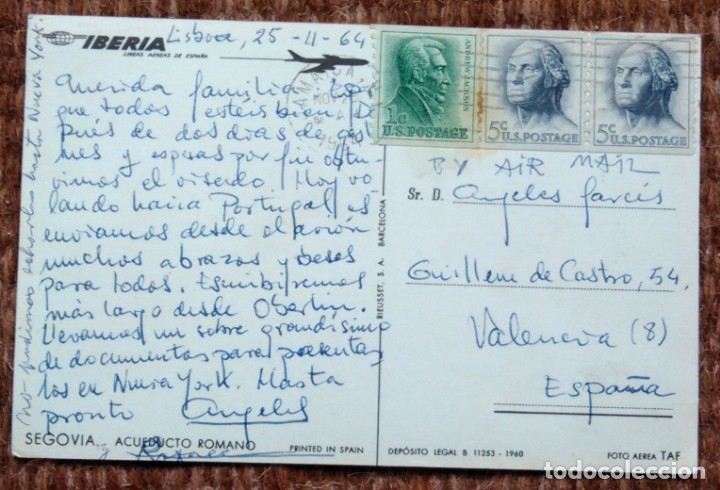 IBERIA
LINEAS AEREAS DE ESPAÑA
Lisboa, 25 -11- 64
Querida familia:
que todos estéis bien. Des
pués de dos dias de gestio
nes y esperas por fin obtu
vimos el visado. Hoy vo
lando hacia Portugal os
enviamos desde el avión
muchos abrazos y besos
para todos. Escribiremos
más largo desde Oberlin.
Llevamos un sobre grandísimo
de documentos para presentar
los en Nueva York. Hasta
pronto Angeles
y Rafael
no pudimos echarla hasta Nueva York.
SEGOVIA. ACUEDUCTO ROMANO
PRINTED IN SPAIN
RIEUSSET, S. A. BARCELONA
ANDREW JACKSON
1c
U.S. POSTAGE
5c U.S. POSTAGE
5c U.S. POSTAGE
BY AIR MAIL
Sr. D. Angeles Garcés
Guillem de Castro, 54,
Valencia (8)
España
DEPÓSITO LEGAL B 11253 - 1960
FOTO AEREA TAF
todocoleccion
todocoleccion.net